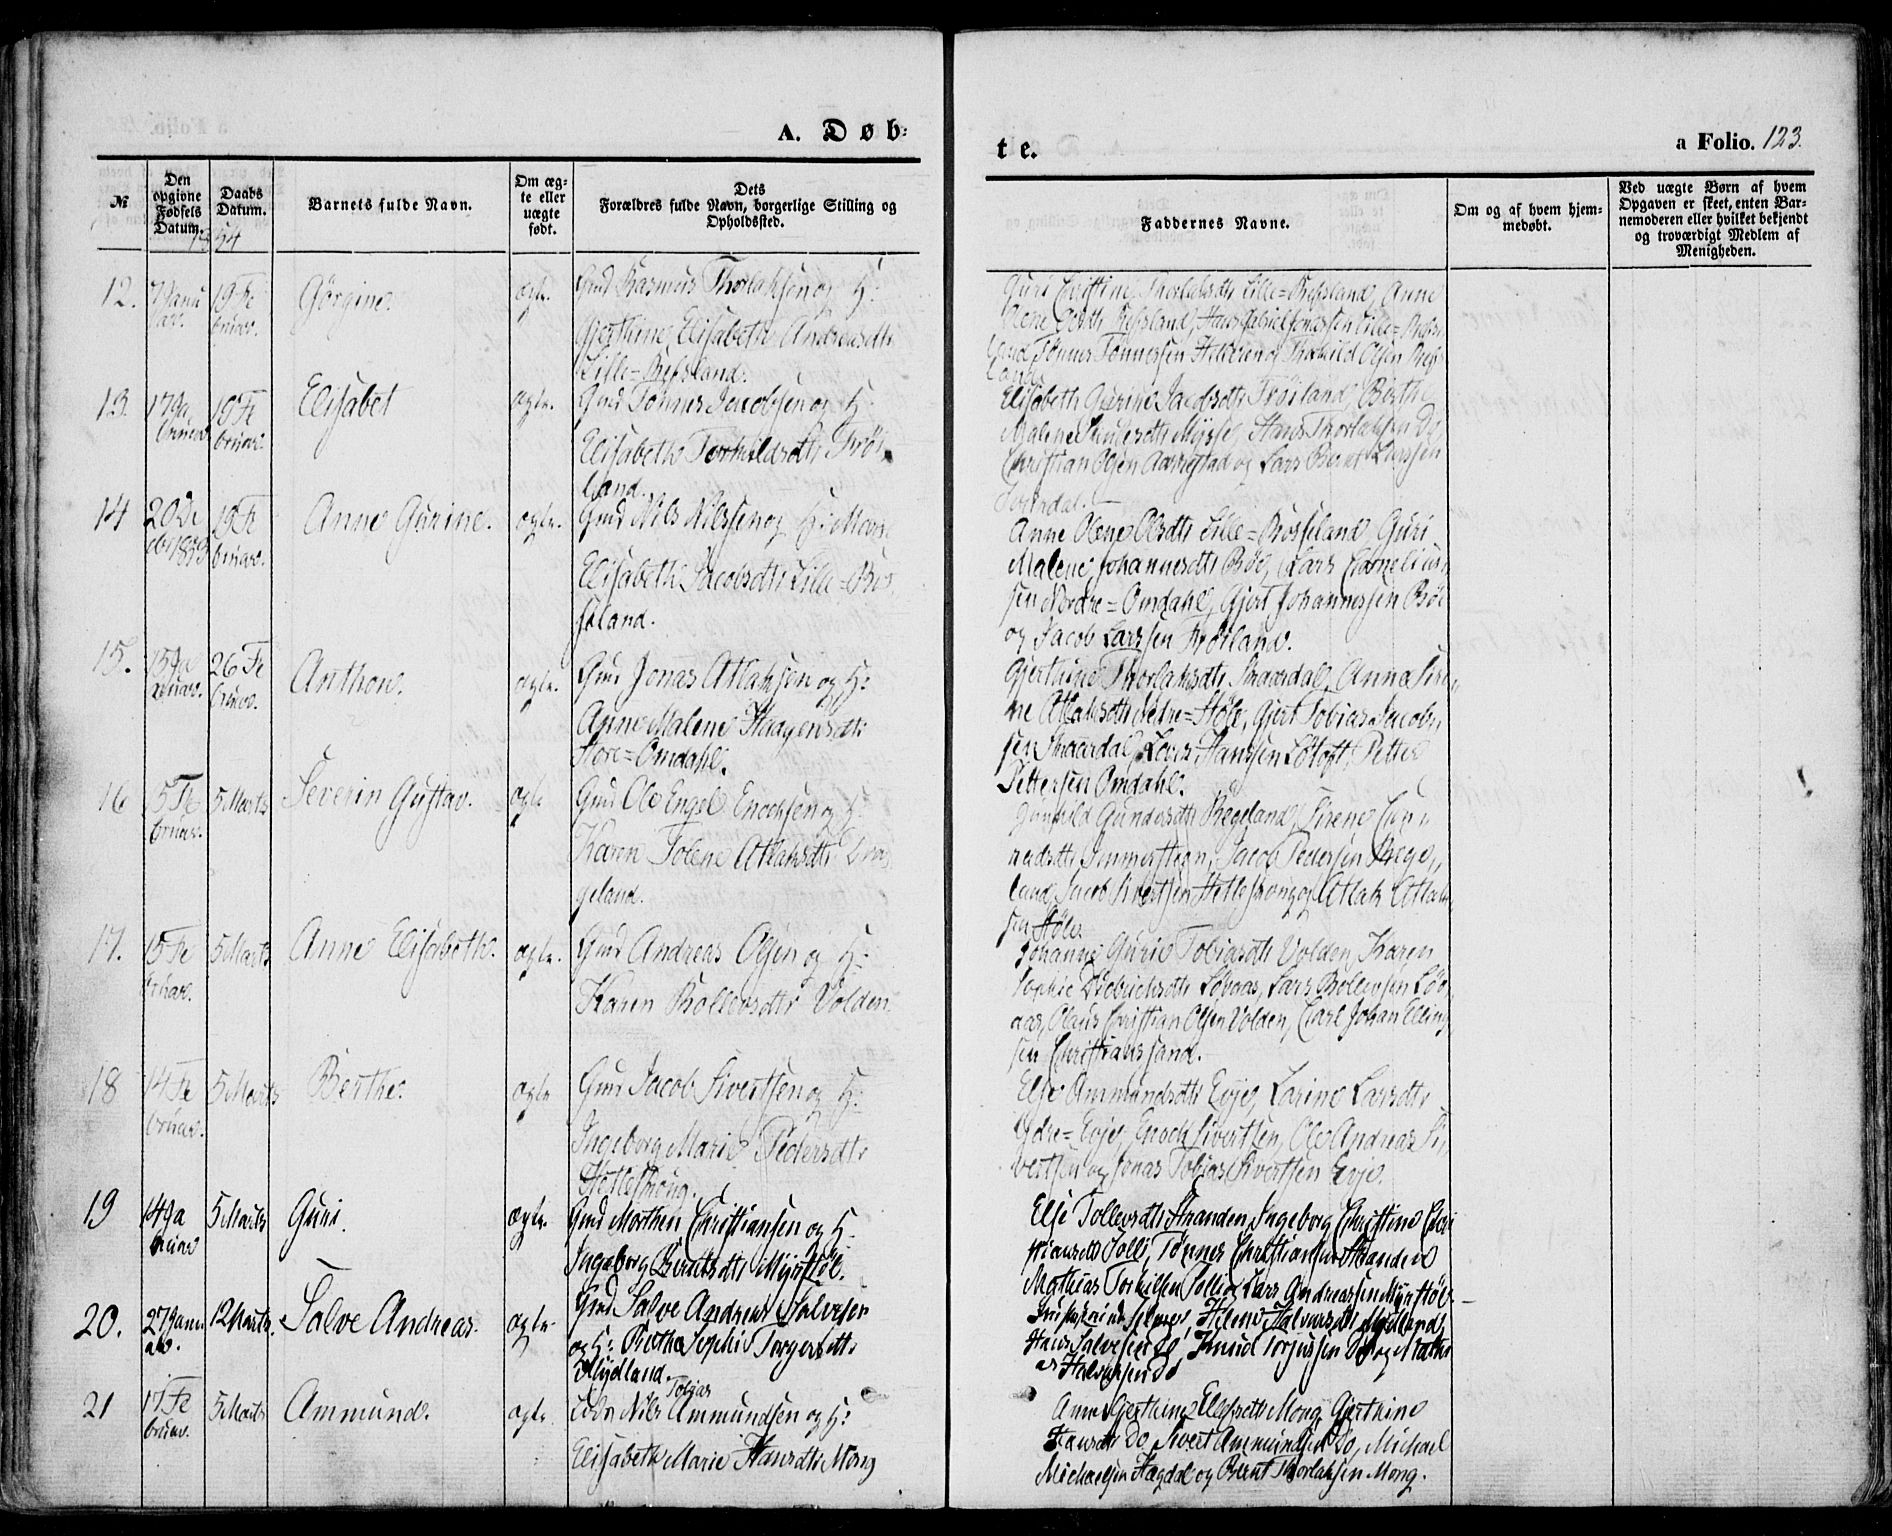 A. Døb-
te.
a Folio. 123.
№
Den opgivne Fødsels Datum.
Daabs Datum.
Barnets fulde Navn.
Om ægte eller uægte født.
Dets
Forældres fulde Navn, borgerlige Stilling og Opholdssted.
Faddernes Navne.
Om og af hvem hjem-
medøbt.
Ved uægte Børn af hvem
Opgaven er skeet, enten Bar-
nemoderen eller hvilket bekjendt
og troværdigt Medlem af
Menigheden.
1854
12. 7 Janu
ar.
19 Fe
bruar.
Görgine.
ægte.
Gmd Rasmus Thorlaksen og H:
Gjerthine Elisabeth Andreasdtr
Lille=Refsland.
Guri Cristine Thorlaksdtr Lille=Refsland, Anne
Olene Refsland, Hans Gabriel Jonassen Lille=Refs
land Tønnes Tønnessen og Thorkild Olsen Refs
land.
13. 17 Ja
19 Fe
bruar.
Elisabet
ægte.
Gmd Tønnes Jacobsen og H:
Elisabeth Torkildsdtr Trøi
land.
Elisabeth Gurine Jacobsdtr Trøiland, Berthe
Malene Mysse, Hans Thorlaksen Do
Christian Olsen Aarrestad og Lars Bernt Larssen
14 20 De
cbr 1853
19 Fe
bruar.
Anne Gurine.
ægte.
Gmd Nils Nilssen og H: Maren
Elisabeth Jacobsdtr Lille=Ros
seland.
Anne Olene Olsdtr Lille=Rosseland, Guri
Malene Johannesdtr Bøe, Lars Cornelius
sen Nordre=Omdahl, Gjert Johannessen Bøe
og Jacob Larssen Trøiland.
15. 15 Ja
nuar.
26 Fe
bruar.
Anthon.
ægte.
Gmd Jonas Atlaksen og H:
Anne Malene Haagensdtr
Store=Omdahl.
Gjerthine Thorlaksdtr Skaardal, Anna Sere
ne Atlaksdtr Nedre=Støle, Gjert Tobias Jacob
sen Skaardal, Lars Hanssen Løtoft, Petter
Pettersen Omdahl.
16 5 Fe
bruar.
5 Marts
Severin Gustav.
ægte
Gmd Ole Engel Enochsen og H:
Karen Tolene Atlaksdtr
geland.
Gunhild Gundersdtr Regeland, Sirene
radsdtr Immerstegn, Jacob Pedersen Rege
land, Jacob Sivertsen Hetleskong og Atlak Atlak
sen Støle.
17. 15 Fe
bruar.
5 Marts
Anne Elisabeth.
ægte.
Gmd Andreas Olsen og H:
Karen Rollevsdtr Volden.
Johanne Gurie Tobiasdtr Volden, Karen
Sophie Didrichsdtr Løvaas, Lars Rollevsen Løv
aas, Olaus Christian Olsen Volden, Carl Johan Elling
sen Christianssand.
18 14 Fe
bruar.
5 Marts
Berthe.
ægte
Gmd Jacob Sivertsen og H:
Ingeborg Marie Pedersdtr
Hetleskong.
Else Ammundsdtr Evje, Larine Larsdtr
Ydre=Evje, Enoch Sivertsen, Ole Andreas Si
vertsen og Jonas Tobias Sivertsen Evje.
19 14 Ja
nuar
5 Marts
Guri.
ægte.
Gmd Morthen Christiansen og H.
Ingeborg Berntsdtr Myrstøl.
Else Tollevsdtr Stranden, Ingeborg Christine Chri
stiansdtr Solli, Tønnes Christiansen Stranden
Mathias Torkilsen Solli og Lars Andreassen Myrstøl
20. 27 Janu
ar.
12 Marts.
Salve Andreas.
ægte.
Gmd Salve Andreas Salvesen
og H: Berthe Sophie Torgersdtr
Mydland.
Helene Halvorsdtr Mydland,
Hans Salvesen Do, Knud Torjussen Do og
21 17 Fe
bruar.
5 Marts
Ammund.
ægte.
Nils Tobias Ammundsen og H:
Elisabeth Marie Hansdtr Mong
Anne Gerthine Mong, Gjerthine
Hansdtr Do, Sivert Ammundsen Do, Michael
Michaelsen Hægdal og Bernt Thorlaksen Mong.